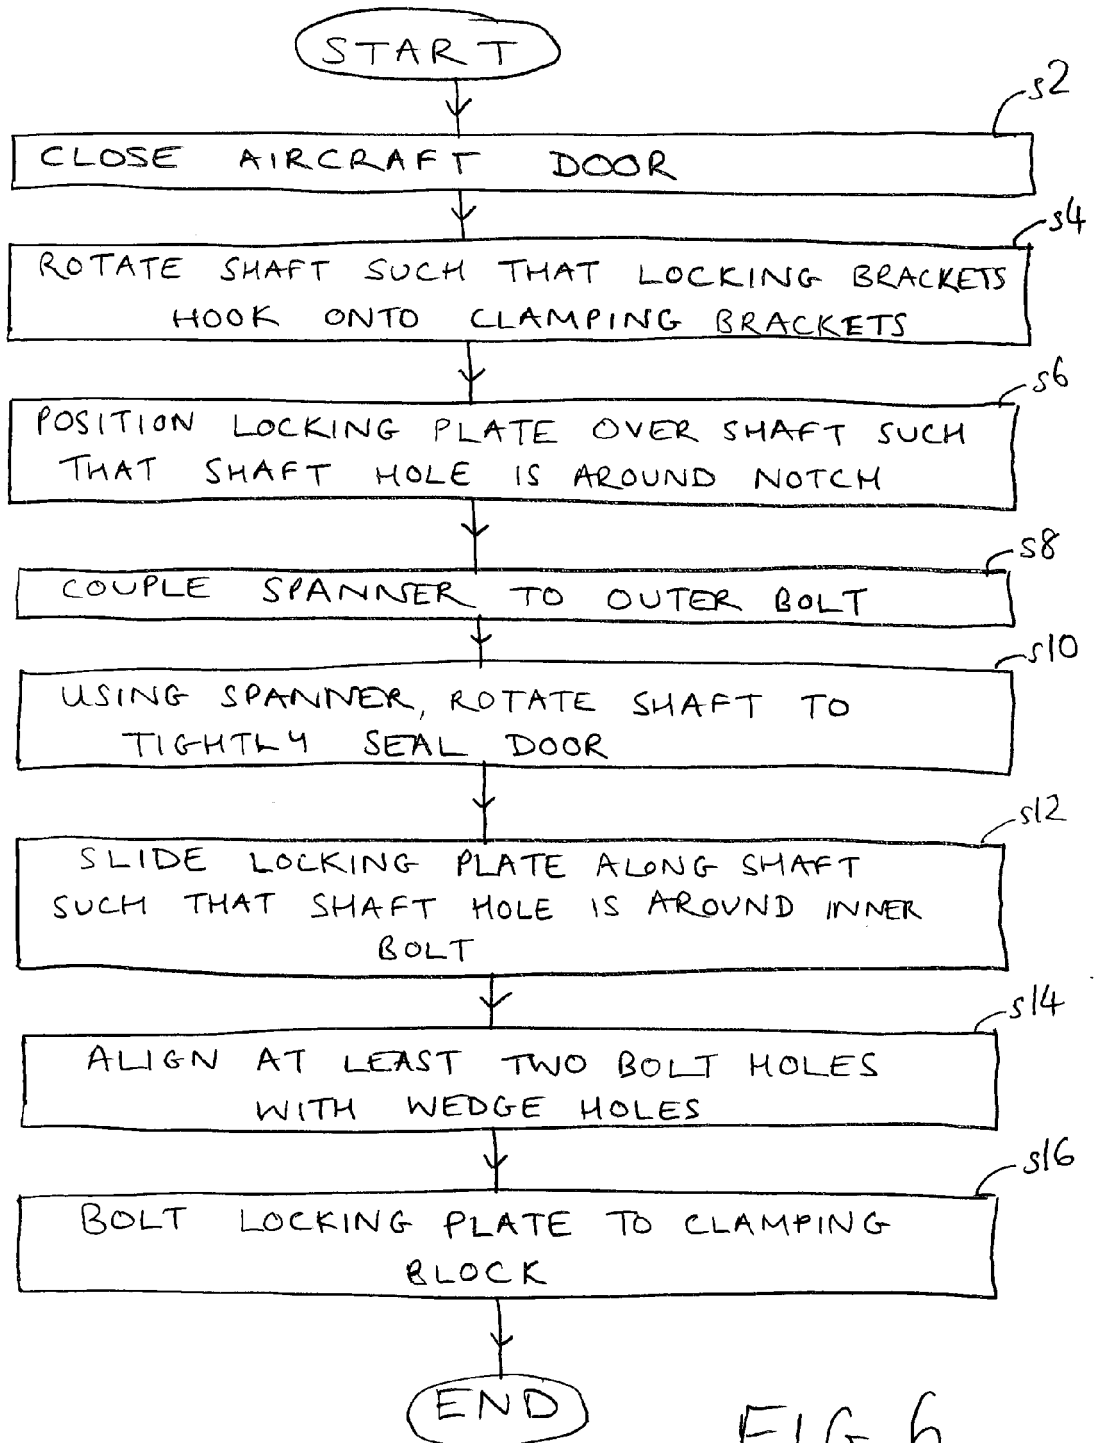 START
s2
CLOSE AIRCRAFT DOOR
s4
ROTATE SHAFT SUCH THAT LOCKING BRACKETS
HOOK ONTO CLAMPING BRACKETS
s6
POSITION LOCKING PLATE OVER SHAFT SUCH
THAT SHAFT HOLE IS AROUND NOTCH
s8
COUPLE SPANNER TO OUTER BOLT
s10
USING SPANNER, ROTATE SHAFT TO
TIGHTLY SEAL DOOR
s12
SLIDE LOCKING PLATE ALONG SHAFT
SUCH THAT SHAFT HOLE IS AROUND INNER
BOLT
s14
ALIGN AT LEAST TWO BOLT HOLES
WITH WEDGE HOLES
s16
BOLT LOCKING PLATE TO CLAMPING
BLOCK
END
FIG. 6